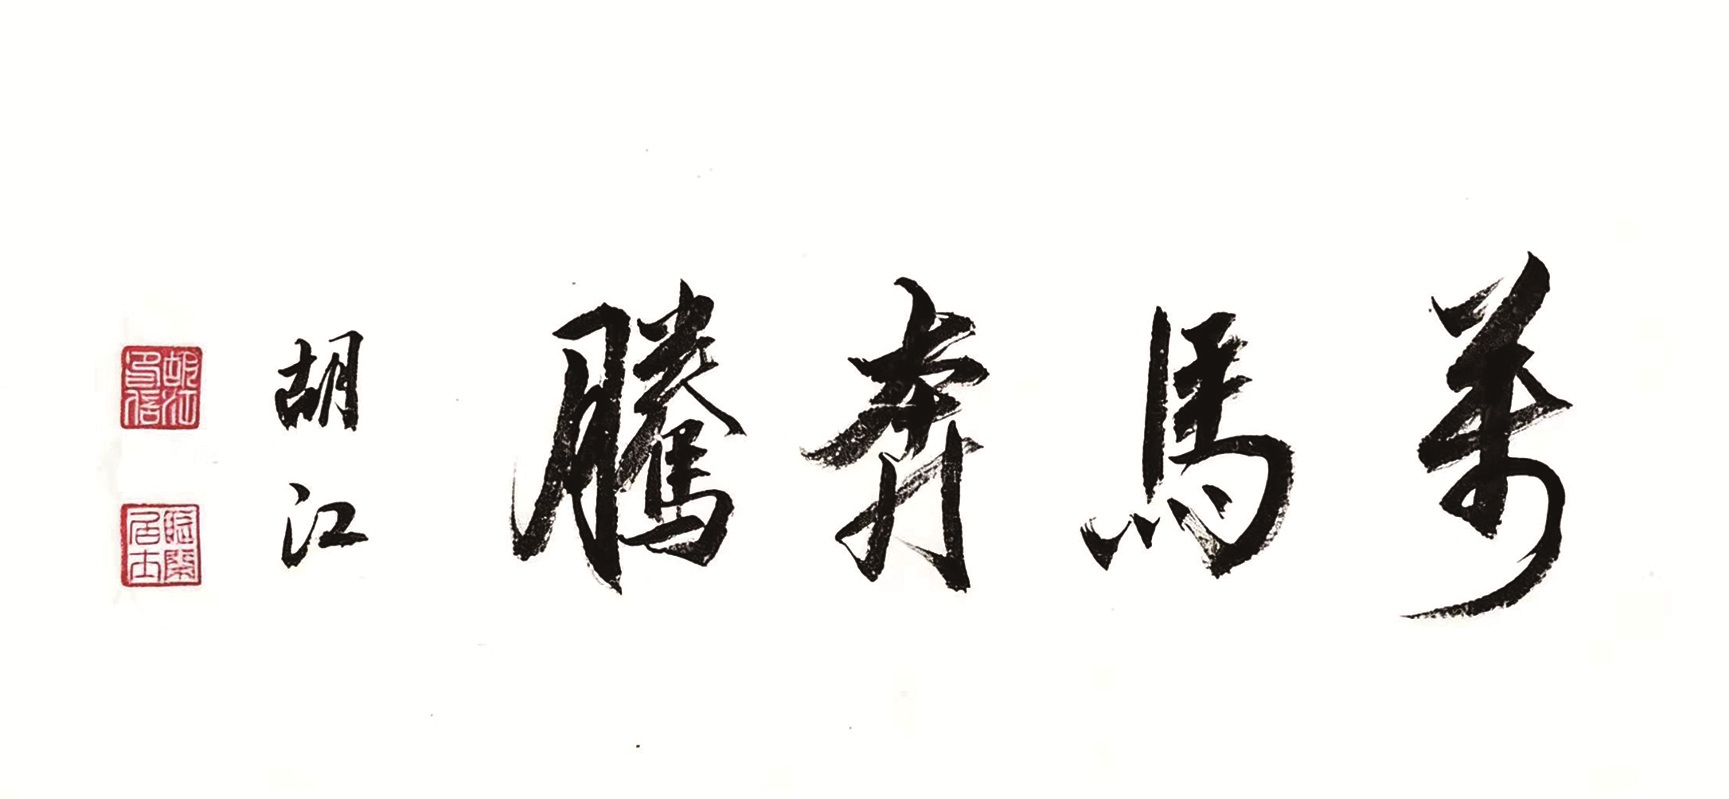 萬馬奔騰
胡江
胡江信印
臨蘭居士